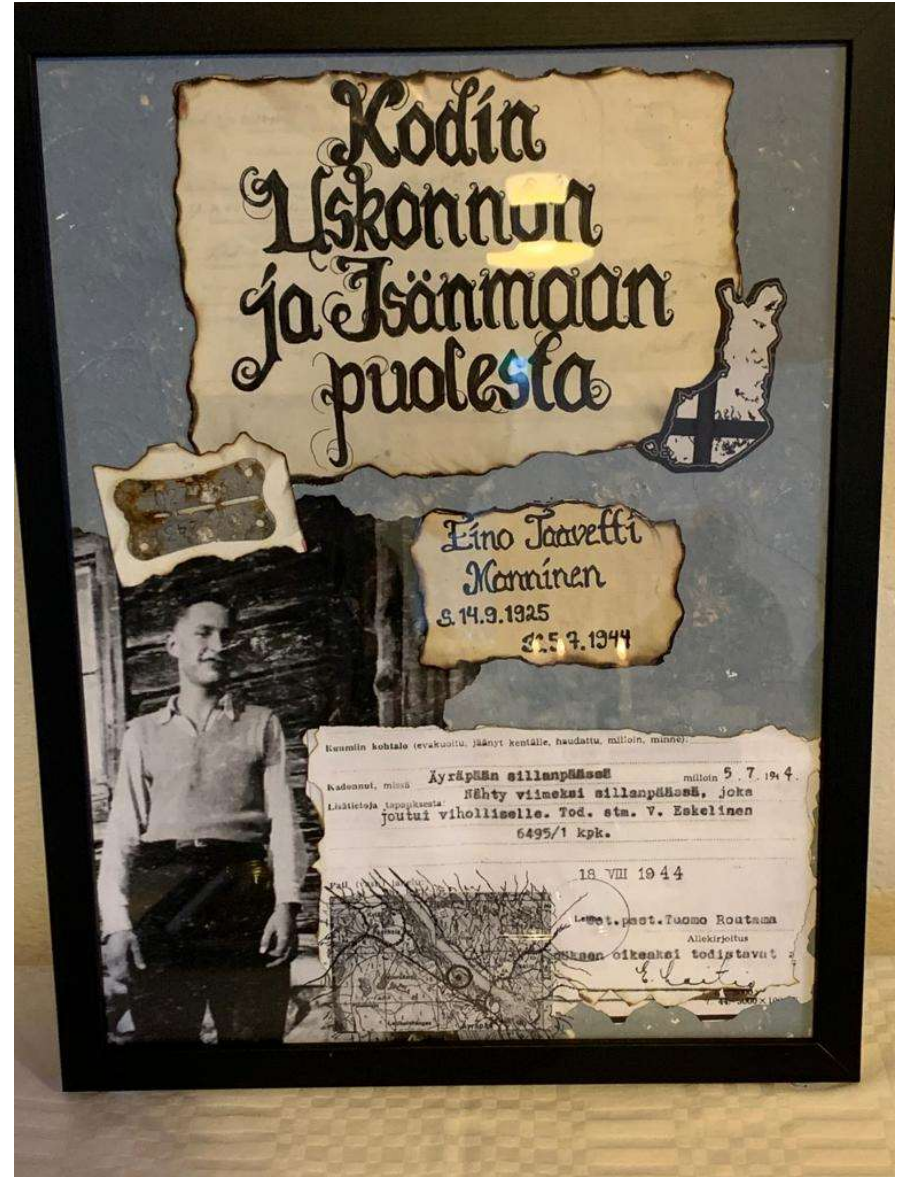 Kodin
Uskonnon
ja Isänmaan
puolesta
Eino Taavetti
Manninen
s. 14.9.1925
5.7.1944
Kuumiin kohtalo (evakuoitu, jäänyt kentälle, haudattu, milloin, minne):
Kadonnut, missä Äyräpään sillanpäässä milloin 5 . 7 . 194 4.
Lisätietoja tapauksesta: Nähty viimeksi sillanpäässä, joka
joutui viholliselle. Tod. stm. V. Eskelinen
6495/1 kpk.
18 VIII 1944
past.Tuomo Routama
Allekirjoitus
oikeaksi todistavat